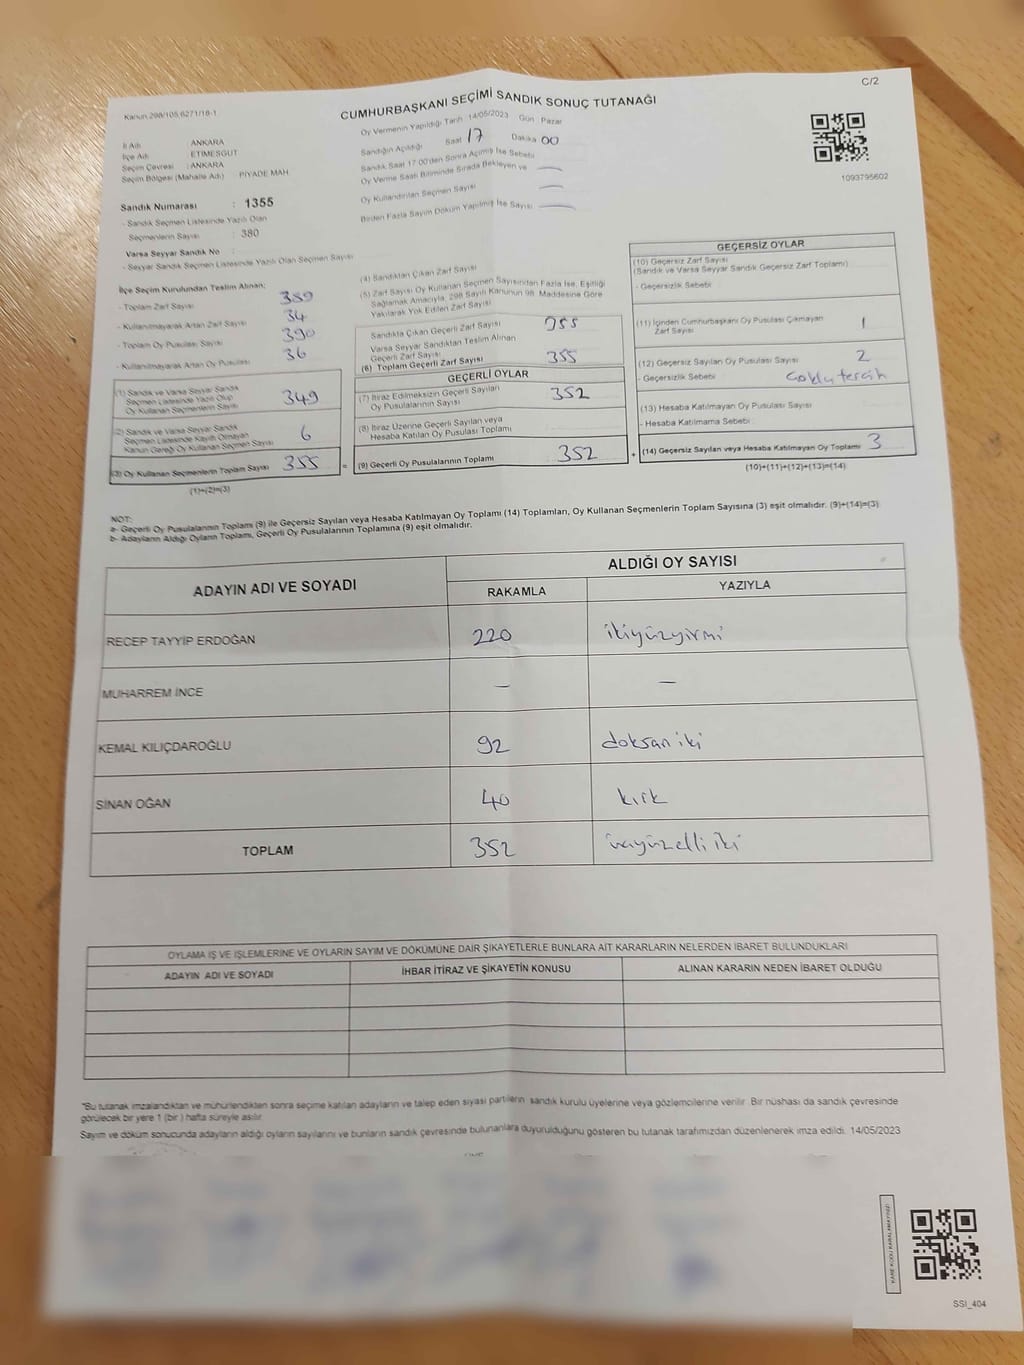 C/2
Kanun 298/105,6271/18-1
CUMHURBAŞKANI SEÇİMİ SANDIK SONUÇ TUTANAĞI
Oy Vermenin Yapıldığı Tarih 14/05/2023 Gün Pazar
Sandığın Açıldığı Saat 17 Dakika 00
Sandık Saat 17 00'den Sonra Açılmış İse Sebebi
Oy Verme Saati Bitiminde Sırada Bekleyen ve —
Oy Kullandırılan Seçmen Sayısı —
Birden Fazla Sayım Döküm Yapılmış İse Sayısı —
İl Adı : ANKARA
İlçe Adı : ETİMESGUT
Seçim Çevresi : ANKARA
Seçim Bölgesi (Mahalle Adı) : PİYADE MAH.
1093795602
Sandık Numarası : 1355
- Sandık Seçmen Listesinde Yazılı Olan
Seçmenlerin Sayısı : 380
Varsa Seyyar Sandık No :
- Seyyar Sandık Seçmen Listesinde Yazılı Olan Seçmen Sayısı
İlçe Seçim Kurulundan Teslim Alınan:
- Toplam Zarf Sayısı 389
- Kullanılmayarak Artan Zarf Sayısı 34
- Toplam Oy Pusulası Sayısı 390
- Kullanılmayarak Artan Oy Pusulası 36
(1) Sandık ve Varsa Seyyar Sandık
Seçmen Listesinde Yazılı Olup
Oy Kullanan Seçmenlerin Sayısı 349
(2) Sandık ve Varsa Seyyar Sandık
Seçmen Listesinde Kayıtlı Olmayan
Kanun Gereği Oy Kullanan Seçmen Sayısı 6
(3) Oy Kullanan Seçmenlerin Toplam Sayısı 355
(1)+(2)=(3)
(4) Sandıktan Çıkan Zarf Sayısı
(5) Zarf Sayısı Oy Kullanan Seçmen Sayısından Fazla İse, Eşitliği
Sağlamak Amacıyla, 298 Sayılı Kanunun 98. Maddesine Göre
Yakılarak Yok Edilen Zarf Sayısı
Sandıkta Çıkan Geçerli Zarf Sayısı 355
Varsa Seyyar Sandıktan Teslim Alınan
Geçerli Zarf Sayısı
(6) Toplam Geçerli Zarf Sayısı 355
GEÇERLİ OYLAR
(7) İtiraz Edilmeksizin Geçerli Sayılan
Oy Pusulalarının Sayısı 352
(8) İtiraz Üzerine Geçerli Sayılan veya
Hesaba Katılan Oy Pusulası Toplamı
= (9) Geçerli Oy Pusulalarının Toplamı 352
GEÇERSİZ OYLAR
(10) Geçersiz Zarf Sayısı
(Sandık ve Varsa Seyyar Sandık Geçersiz Zarf Toplamı)
- Geçersizlik Sebebi:
(11) İçinden Cumhurbaşkanı Oy Pusulası Çıkmayan
Zarf Sayısı 1
(12) Geçersiz Sayılan Oy Pusulası Sayısı 2
- Geçersizlik Sebebi : Çoklu tercih
(13) Hesaba Katılmayan Oy Pusulası Sayısı
- Hesaba Katılmama Sebebi :
+ (14) Geçersiz Sayılan veya Hesaba Katılmayan Oy Toplamı 3
(10)+(11)+(12)+(13)=(14)
NOT:
a- Geçerli Oy Pusulalarının Toplamı (9) ile Geçersiz Sayılan veya Hesaba Katılmayan Oy Toplamı (14) Toplamları, Oy Kullanan Seçmenlerin Toplam Sayısına (3) eşit olmalıdır. (9)+(14)=(3)
b- Adayların Aldığı Oyların Toplamı, Geçerli Oy Pusulalarının Toplamına (9) eşit olmalıdır.
ADAYIN ADI VE SOYADI
ALDIĞI OY SAYISI
RAKAMLA YAZIYLA
RECEP TAYYİP ERDOĞAN 220 ikiyüzyirmi
MUHARREM İNCE — —
KEMAL KILIÇDAROĞLU 92 doksan iki
SİNAN OĞAN 40 kırk
TOPLAM 352 üçyüzelli iki
OYLAMA İŞ VE İŞLEMLERİNE VE OYLARIN SAYIM VE DÖKÜMÜNE DAİR ŞİKAYETLERLE BUNLARA AİT KARARLARIN NELERDEN İBARET BULUNDUKLARI
ADAYIN ADI VE SOYADI İHBAR İTİRAZ VE ŞİKAYETİN KONUSU ALINAN KARARIN NEDEN İBARET OLDUĞU
*Bu tutanak imzalandıktan ve mühürlendikten sonra seçime katılan adayların ve talep eden siyasi partilerin sandık kurulu üyelerine veya gözlemcilerine verilir. Bir nüshası da sandık çevresinde
görülecek bir yere 1 (bir ) hafta süreyle asılır.
Sayım ve döküm sonucunda adayların aldığı oyların sayılarını ve bunların sandık çevresinde bulunanlara duyurulduğunu gösteren bu tutanak tarafımızdan düzenlenerek imza edildi. 14/05/2023
KARE KODU KARALAMAYINIZ!
SSI_404